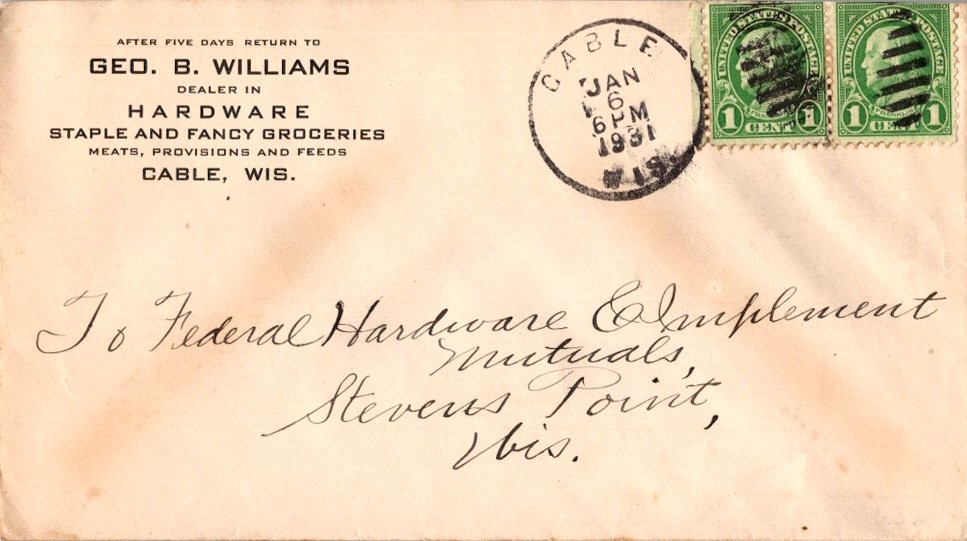 AFTER FIVE DAYS RETURN TO
GEO. B. WILLIAMS
DEALER IN
HARDWARE
STAPLE AND FANCY GROCERIES
MEATS, PROVISIONS AND FEEDS
CABLE, WIS.
CABLE
JAN
6
6PM
1931
WIS
UNITED STATES POSTAGE
1 CENT 1
UNITED STATES POSTAGE
FRANKLIN
1 CENT 1
To Federal Hardware & Implement
Mutuals,
Stevens Point,
Wis.